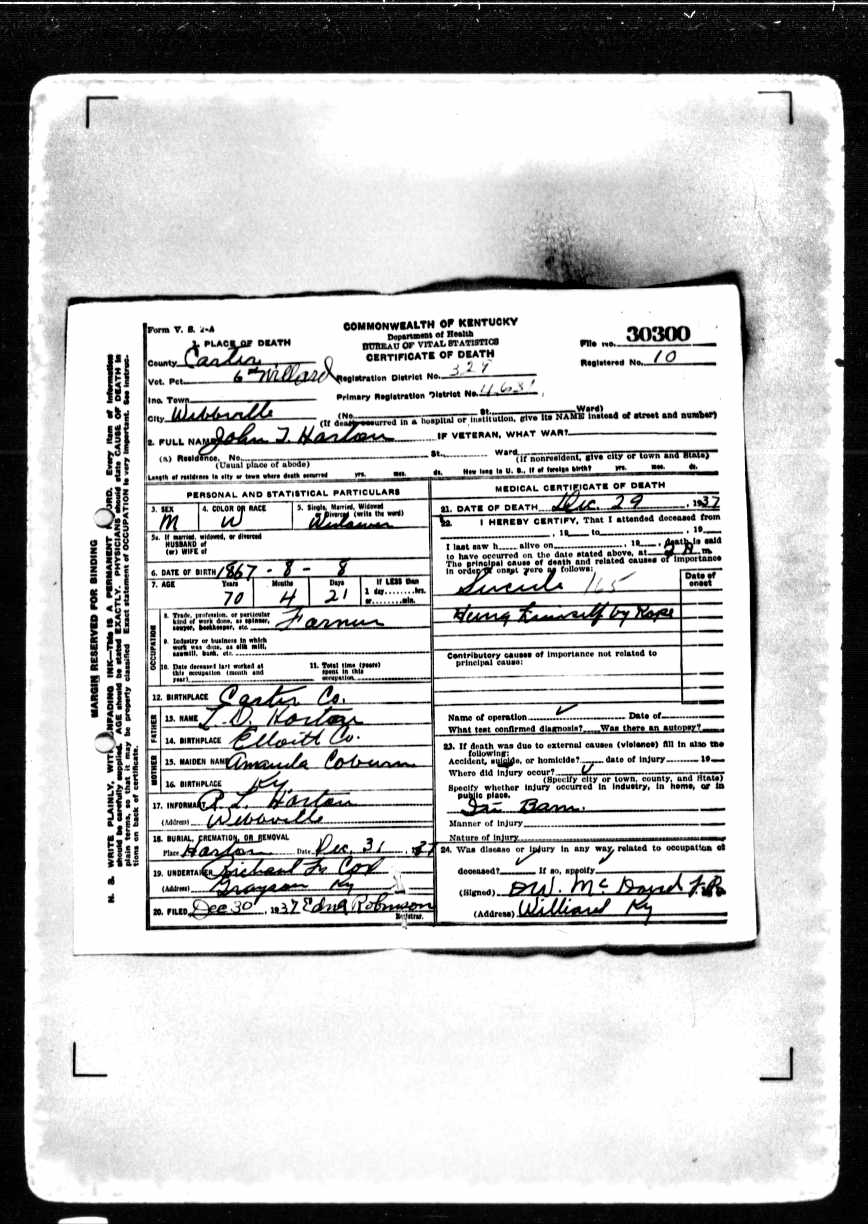 Form V. S. 2-A
COMMONWEALTH OF KENTUCKY
Department of Health
BUREAU OF VITAL STATISTICS
CERTIFICATE OF DEATH
File No. 30300
Registered No. 10
1. PLACE OF DEATH
County Carter
Vot. Pct. 6 Willard Registration District No. 329
Inc. Town Primary Registration District No.
City Webbville (No. St. Ward)
(If death occurred in a hospital or institution, give its NAME instead of street and number)
2. FULL NAME John T. Horton IF VETERAN, WHAT WAR?
(a) Residence. No. St. Ward
(Usual place of abode) (If nonresident, give city or town and State)
Length of residence in city or town where death occurred yrs. mos. ds. How long in U. S., if of foreign birth? yrs. mos. ds.
PERSONAL AND STATISTICAL PARTICULARS
3. SEX M
4. COLOR OR RACE W
5. Single, Married, Widowed or Divorced (write the word) Widower
5a. If married, widowed, or divorced
HUSBAND of
(or) WIFE of
6. DATE OF BIRTH 1867 - 8 - 8
7. AGE Years 70 Months 4 Days 21 If LESS than 1 day hrs. or min.
OCCUPATION
8. Trade, profession, or particular kind of work done, as spinner, sawyer, bookkeeper, etc. Farmer
9. Industry or business in which work was done, as silk mill, sawmill, bank, etc.
10. Date deceased last worked at this occupation (month and year)
11. Total time (years) spent in this occupation
12. BIRTHPLACE Carter Co.
FATHER
13. NAME Horton
14. BIRTHPLACE Elloitt Co.
MOTHER
15. MAIDEN NAME Amanda Coburn
16. BIRTHPLACE Ky
17. INFORMANT R. L. Horton
(Address) Webbville
18. BURIAL, CREMATION, OR REMOVAL
Place Horton Date Dec. 31, 37
19. UNDERTAKER Cox
(Address) Grayson Ky
20. FILED Dec 30, 1937 Edna Robinson
Registrar.
MEDICAL CERTIFICATE OF DEATH
21. DATE OF DEATH Dec. 29, 1937
22. I HEREBY CERTIFY, That I attended deceased from
, 19 to , 19
I last saw h alive on , 19 , death is said
to have occurred on the date stated above, at m.
The principal cause of death and related causes of importance
in order of onset were as follows:
Date of onset
Suicide 165
Hung himself by Rope
Contributory causes of importance not related to
principal cause:
Name of operation Date of
What test confirmed diagnosis? Was there an autopsy?
23. If death was due to external causes (violence) fill in also the
following:
Accident, suicide, or homicide? date of injury 19
Where did injury occur?
(Specify city or town, county, and State)
Specify whether injury occurred in industry, in home, or in
public place.
In Barn.
Manner of injury
Nature of injury
24. Was disease or injury in any way related to occupation of
deceased? If so, specify
(Signed) McDavid
(Address) Williard Ky
MARGIN RESERVED FOR BINDING
N. B. WRITE PLAINLY, WITH UNFADING INK—This IS A PERMANENT RECORD. Every item of information
should be carefully supplied. AGE should be stated EXACTLY. PHYSICIANS should state CAUSE OF DEATH in
plain terms, so that it may be properly classified. Exact statement of OCCUPATION is very important. See instruc-
tions on back of certificate.